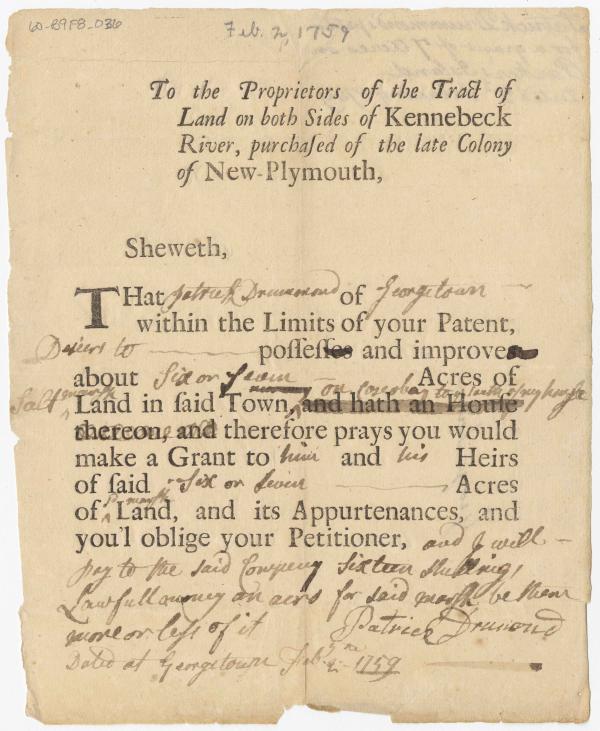 60-B9F8_036
Feb. 2, 1759
To the Proprietors of the Tract of
Land on both Sides of Kennebeck
River, purchaſed of the late Colony
of New-Plymouth,
Sheweth,
THat patrick Drummond of Georgetown
within the Limits of your Patent,
Desiers to poſſeſſes and improves
about Six or Seven Acres of
Salt marsh on
Land in ſaid Town, and hath an Houſe
thereon, and therefore prays you would
make a Grant to him and his Heirs
of ſaid Six or Seven Acres
of marsh Land, and its Appurtenances, and
you'l oblige your Petitioner, and I will
pay to the said Company Sixteen Shillings
Lawfull money an acre for said marsh be there
more or less of it
Patrick Drumond
Dated at Georgetown Feb 2 1759